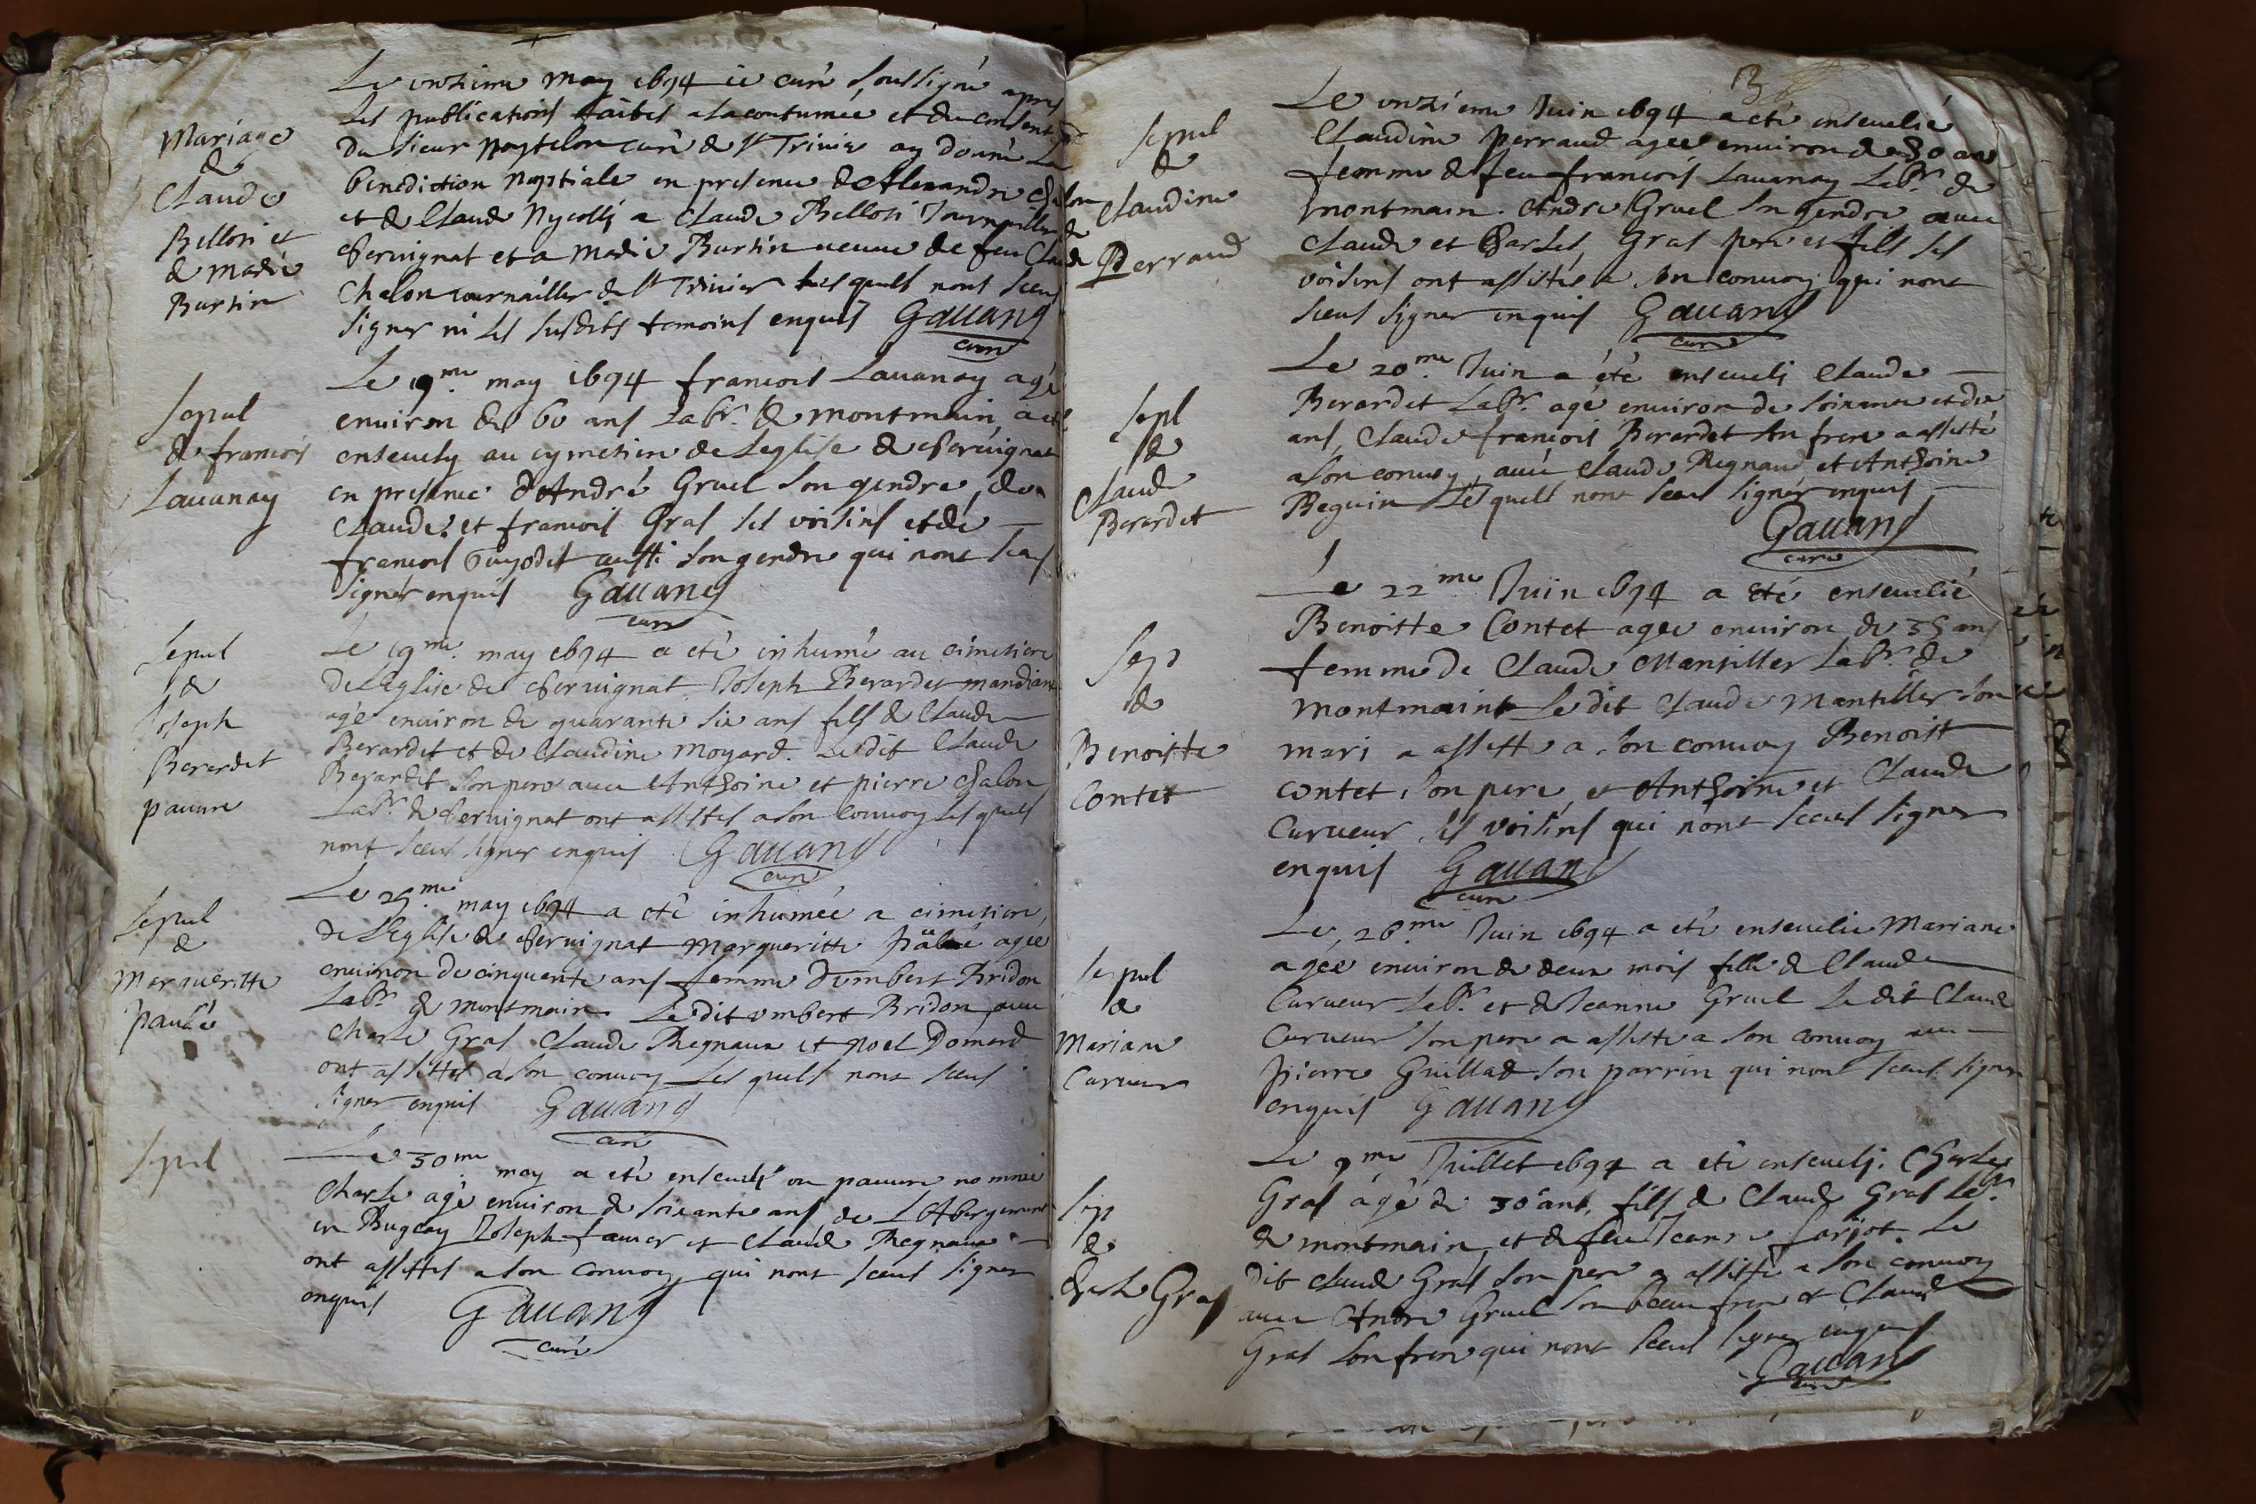 Mariage
de
Claude
Belloti et
de Marie
Burtin
Le unzieme may 1694 ie curé soussigné apres
les publications faites a la coutumée et du consent
du sieur curé de st Trivier ay donné la
benediction nuptiale en presence de Alexandre Chalon
et de Claude Nycolly a Claude Belloti Journallier de
Chervignat et a Marie Burtin veuve de feu Claude
Chalon journailler de st Trivier lesquels nont sceus
signer ni les susdits temoins enquis Gauand
curé
Sepul
de francois
Lauanay
Le 19me may 1694 francois Lauanay agé
environ de 60 ans Labr. de montmain, a eté
enseuely au cymetiere de Leglise de Chervignat
en presence d'André Gruel son gendre, de
Claude et francois Gras ses voisins et de
francois Guyodet aussi son gendre qui nont sceus
signér enquis Gauand
curé
Sepul
de
Joseph
Berardet
pauure
Le 19me may 1694 a eté inhumé au cimetiere
de Leglise de Chervignat Joseph Berardet mandiant
agé environ de quarante six ans fils de Claude
Berardet et de Claudine Moyard. Ledit Claude
Berardet son pere auec Anthoine et pierre Chalon
Labr. de Chervignat ont assistes a son conuoy lesquels
nont sceus signer enquis Gauand
curé
Sepul
de
Margueritte
paulé
Le 25me may 1694 a eté inhumée a cimetiere
de Leglise de Chervignat Margueritte agee
environ de cinquente ans femme d'umbert Bridon
Labr de montmain Ledit umbert Bridon auec
Charle Gras Claude Regnaux et Noel Domard
ont assistes a son conuoy Les quels nont sceus
signer enquis Gauand
curé
Sepul
Le 30me may a eté enseueli un pauure nommé
Charle agé environ de soixante ans de L'Abergement
en Bugeay Joseph fauier et Claude Regnaux
ont assistes a son conuoy qui nont sceus signer
enquis Gauand
curé
13
Sepul
de
Claudine
Perraud
Le unzieme Juin 1694 a eté enseuelié
Claudine Perraud agee environ de 50 ans
femme de feu francois Lauanay Labr. de
montmain. Andre Gruel son gendre auec
Claude et Charles Gras pere et fils ses
voisins ont assistés a son conuoy qui nont
sceus signer enquis Gauand
curé
Sepl
de
Claude
Berardet
Le 20me Juin a été enseueli Claude
Berardet Labr. agé environ de soixante et dix
ans, Claude francois Berardet son frere a assisté
a son conuoy, auec Claude Regnaud et Anthoine
Beguin Lesquels nont sceus signér enquis
Gauand
curé
Sep
de
Benoitte
Contet
Le 22me Juin 1694 a eté enseuelié
Benoitte Contet agee environ de 35 ans
femme de Claude Mantiller Labr. de
montmaint Ledit Claude Mantiller son
mari a assitte a son conuoy Benoist
contet son pere et Anthoine et Claude
Curueur ses voisins qui nont sceus signer
enquis Gauand
curé
Sepul
de
Mariane
Curueur
Le, 26me Juin 1694 a eté enseuelie Mariane
agee environ de deux mois fille de Claude
Curueur Labr. et de Jeanne Gruel Le dit Claude
Curueur son pere a assiste a son conuoy auec
pierre Guillad son parrin qui nont sceus signer
enquis Gauand
Sep
de
Charle Gras
Le 9me Juillet 1694 a eté enseueli. Charles
Gras ágé de 30 ans, fils de Claude Gras Labr.
de montmain, et de feu Jeanne farjot. Le
dit Claude Gras son pere a assisté a son conuoy
auec Andre Gruel son beau frere et Claude
Gras son frere qui nont sceus signer enquis
Gauand
curé